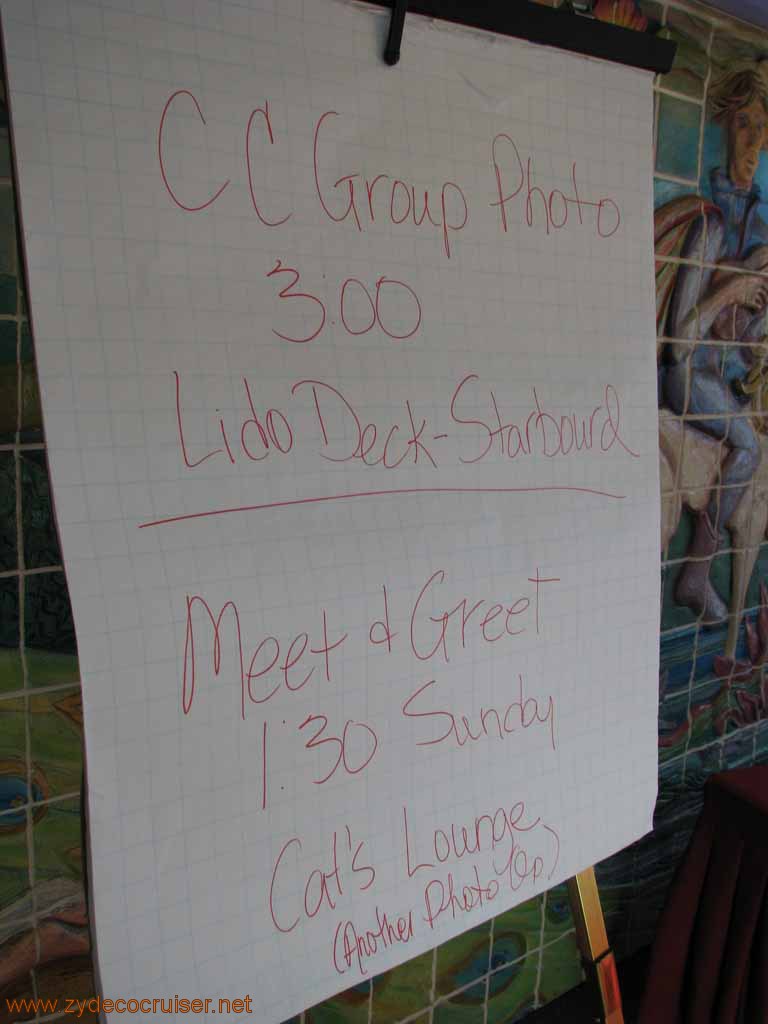 CC Group Photo
3:00
Lido Deck-Starbourd
Meet & Greet
1:30 Sunday
Cat's Lounge
(Another Photo Op)
www.zydecocruiser.net